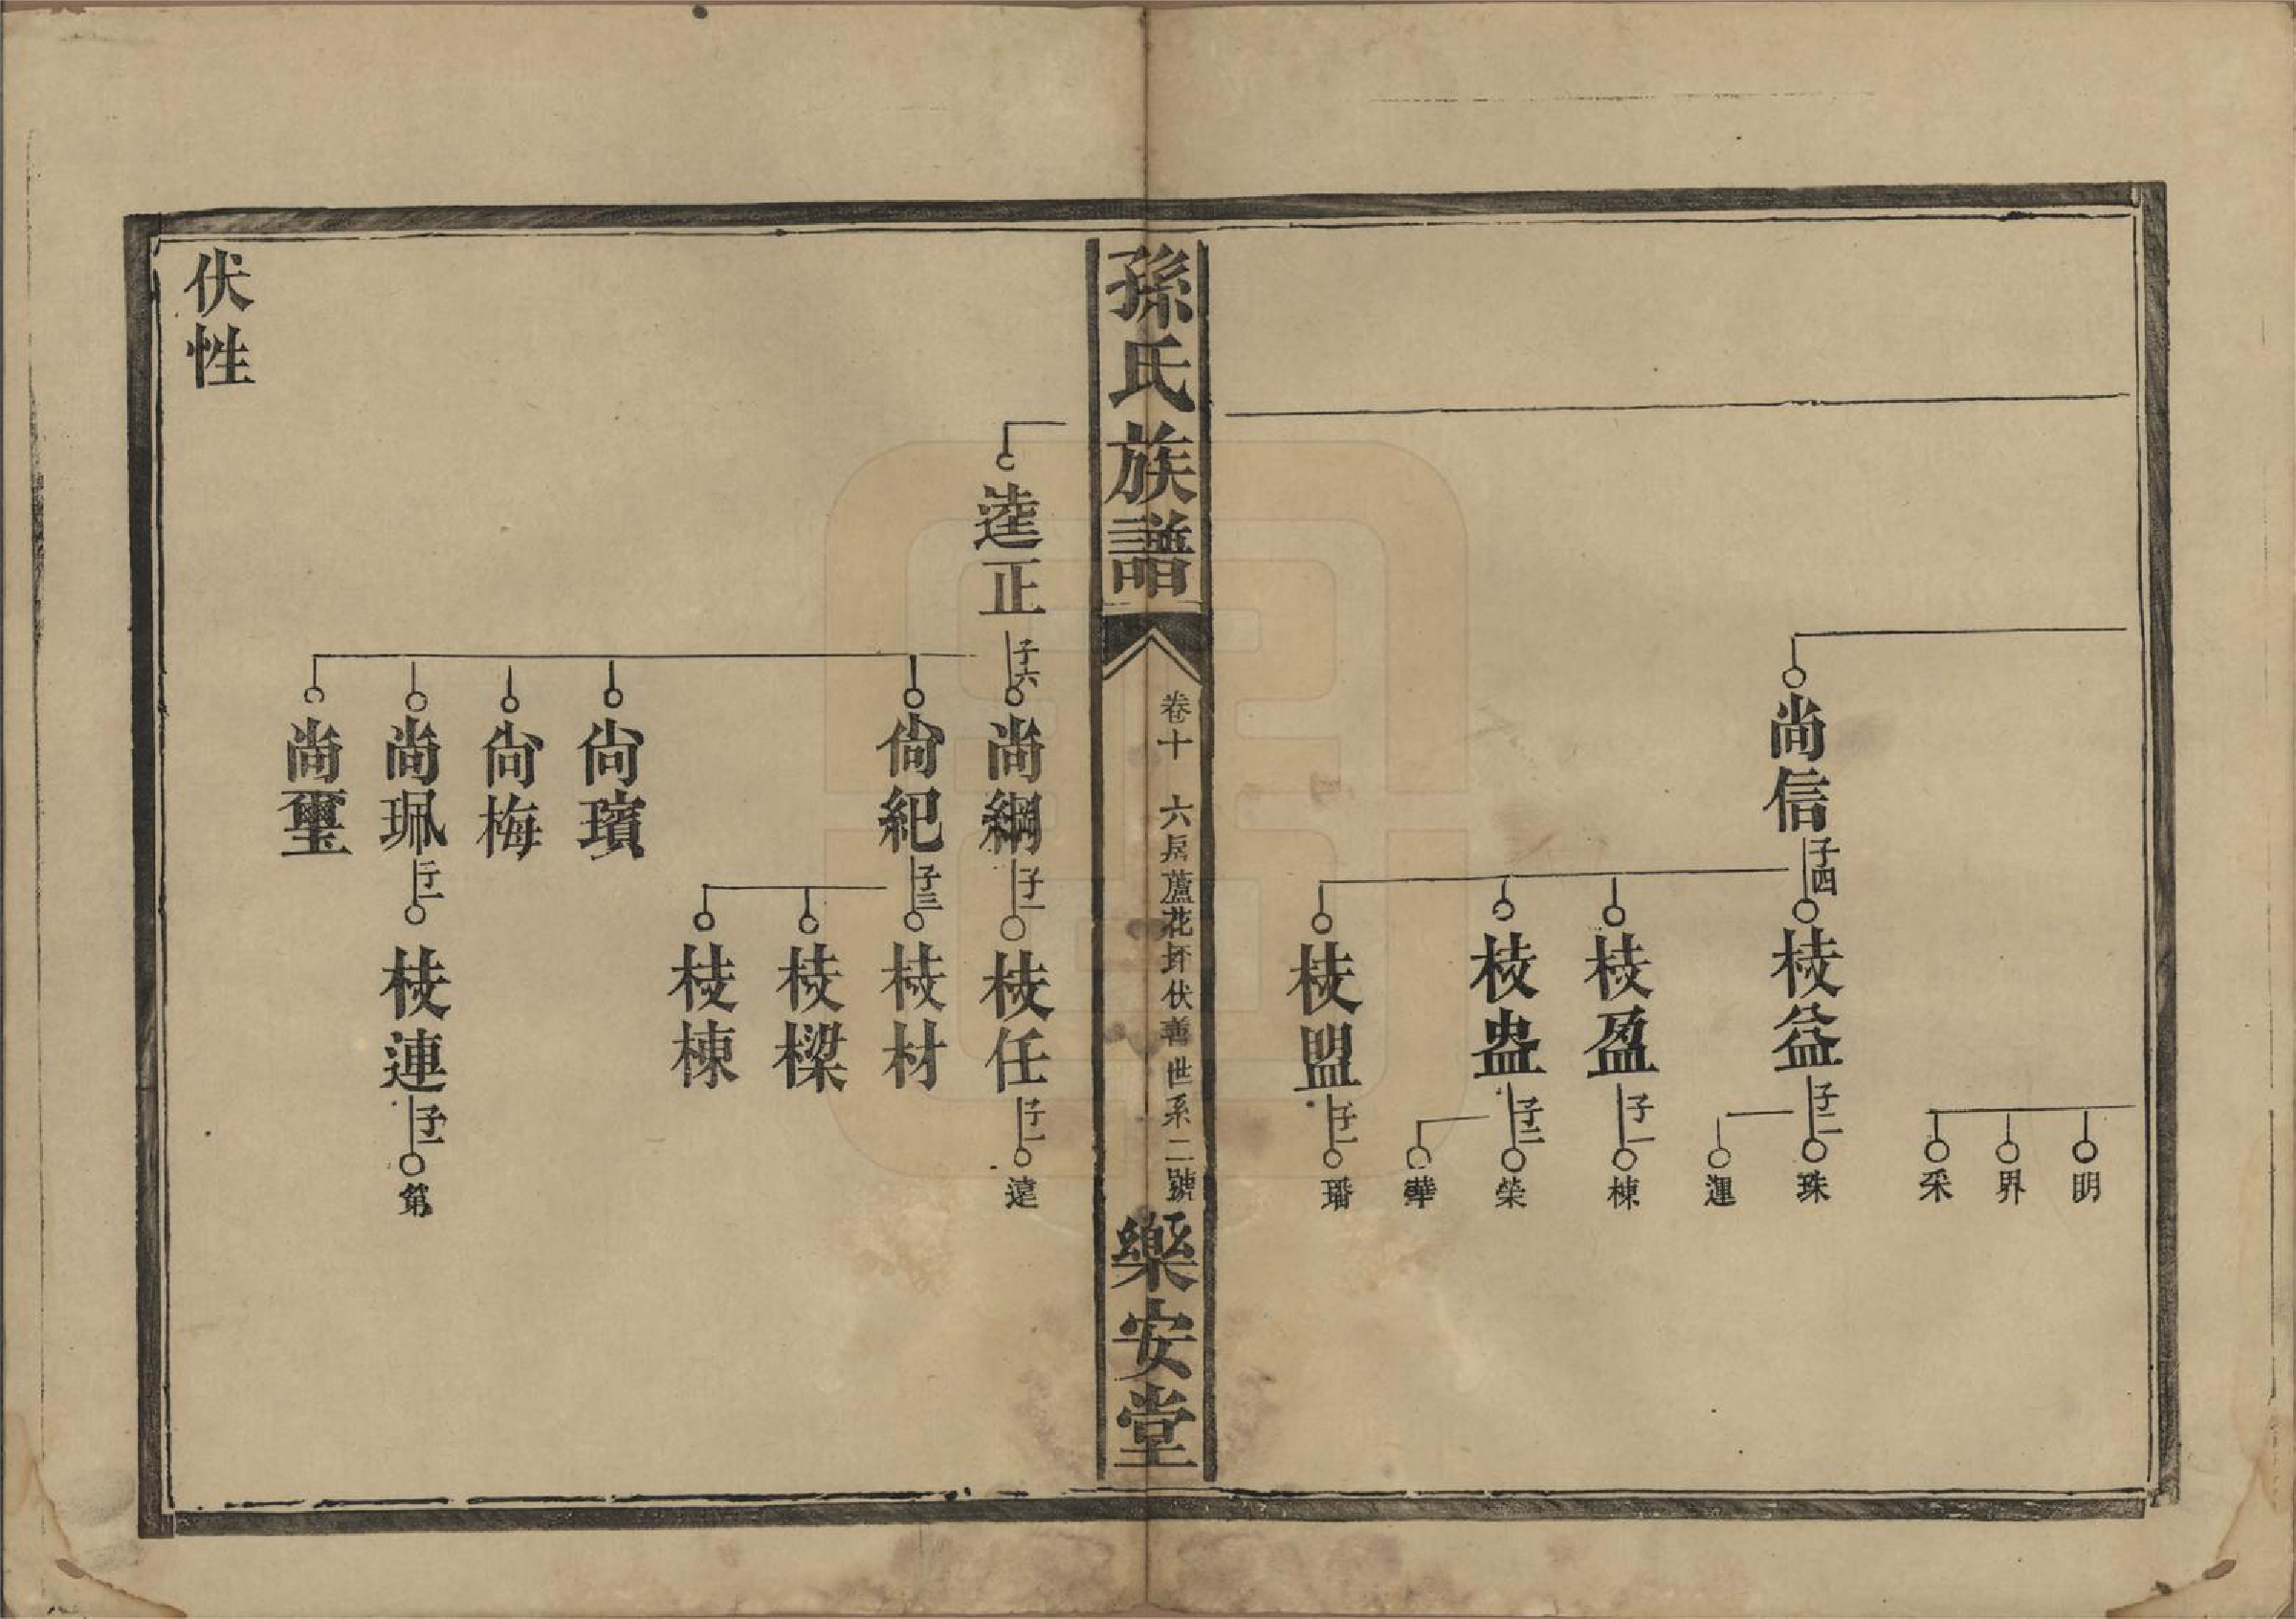 明
界
采
尚信
子四
枝益
子二
珠
枝盈
子一
棟
枝蛊
子二
榮
華
枝盟
子一
璠
孫氏族譜
卷十
六房蘆花坏伏善世系二號
樂安堂
逵正
子六
尚綱
子一
枝任
子一
遠
尚紀
子三
枝材
枝樑
枝棟
尚璸
尚梅
尚珮
子一
枝連
子一
第
尚璽
伏性